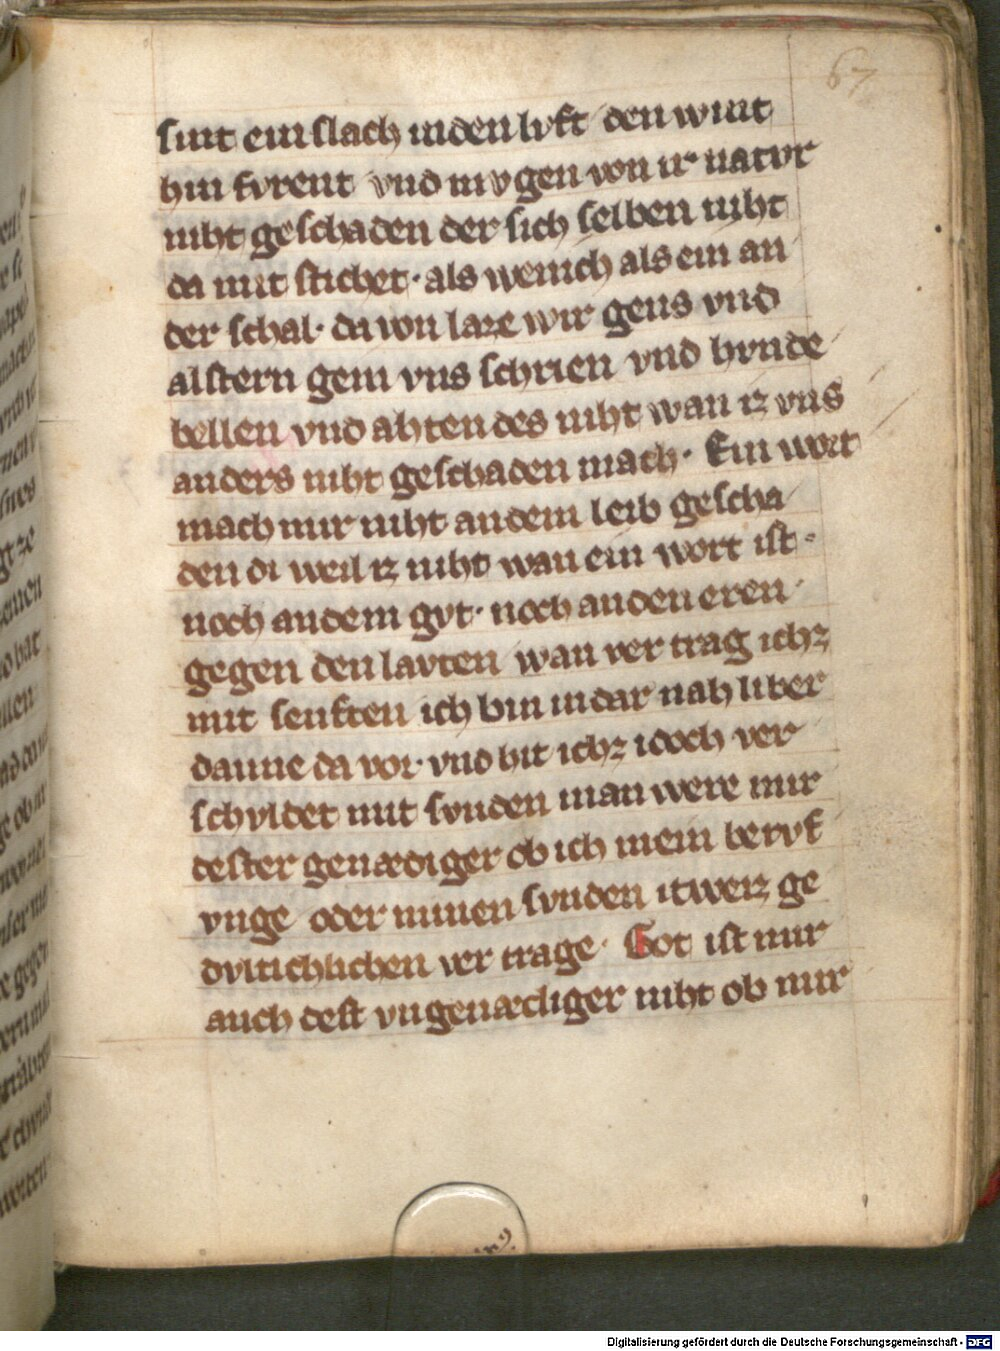 67
sint ein slach in den lvft den wint
hin fvrent vnd mvgen von ir natvr
niht geschaden der sich selben niht
da mit stichet· als wenich als ein an
der schal· da von laze wir gens vnd
alstern gein vns schrien vnd hvnde
bellen vnd ahten des niht wan iz vns
anders niht geschaden mach· Ein wort
mach mir niht an dem leib gescha
den di weil iz niht wan ein wort ist·
noch an dem gvt· noch an den eren·
gegen den lavten wan ver trag ichz
mit senften ich bin in dar nah liber
danne da vor· vnd hit ichz idoch ver
schvldet mit svnden man were mir
dester genædiger ob ich mein bervf
vnge oder minen svnden itweiz ge
dvltichlichen ver trage· Got ist mir
auch dest vngenædiger niht ob mir
Digitalisierung gefördert durch die Deutsche Forschungsgemeinschaft - DFG